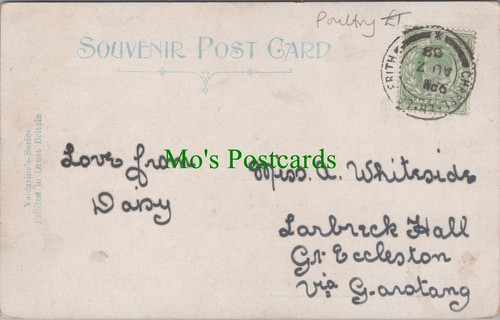 Poultry Lt
SOUVENIR POST CARD
CHAPEL-EN-LE-FRITH
9 PM
AU 2
09
Valentine's Series
Printed in Great Britain
Love from
Daisy
Mo's Postcards
Miss. A. Whiteside
Larbreck Hall
Gt. Eccleston
Via Garstang